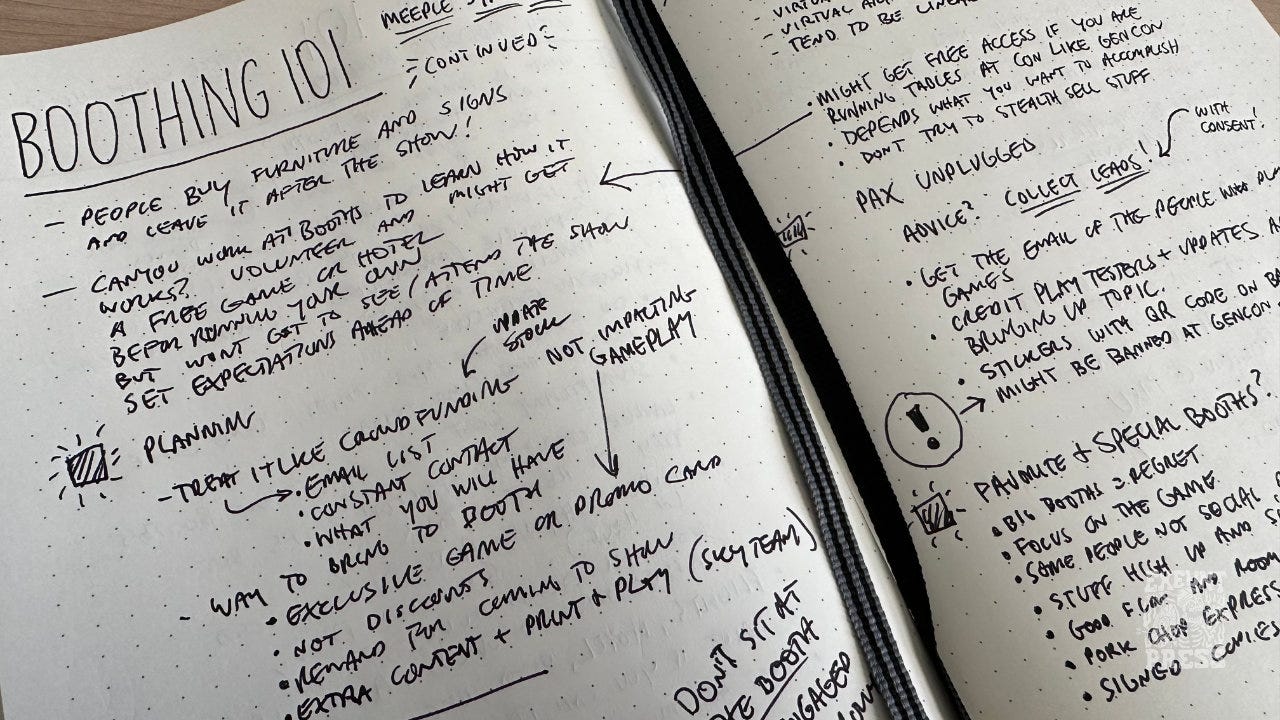 BOOTHING 101
MEEPLE
CONTINUED
— PEOPLE BUY FURNITURE AND SIGNS
AND LEAVE IT AFTER THE SHOW!
— CAN YOU WORK AT BOOTHS TO LEARN HOW IT
WORKS? VOLUNTEER AND MIGHT GET
A FREE GAME OR HOTEL
BEFOR RUNNING YOUR OWN
BUT WONT GET TO SEE/ATTEND THE SHOW
SET EXPECTATIONS AHEAD OF TIME
PLANNING
UPDATE
STOCK
NOT IMPACTING
GAMEPLAY
- TREAT IT LIKE CROWDFUNDING
• EMAIL LIST
• CONSTANT CONTACT
• WHAT YOU WILL HAVE
- WAY TO BRING TO BOOTH
• EXCLUSIVE GAME OR PROMO CARD
• NOT DISCOUNTS
• REWARD FOR COMING TO SHOW
• EXTRA CONTENT + PRINT + PLAY (SKY TEAM)
DON'T SIT AT
BOOTH
- VIRTUAL
- TEND TO BE
• MIGHT GET FREE ACCESS IF YOU ARE
RUNNING TABLES AT CON LIKE GENCON
• DEPENDS WHAT YOU WANT TO ACCOMPLISH
• DON'T TRY TO STEALTH SELL STUFF
PAX UNPLUGGED
WITH
CONSENT!
ADVICE? COLLECT LEADS!
• GET THE EMAIL OF THE PEOPLE WHO
GAMES
• CREDIT PLAY TESTERS + UPDATES
BRINGING UP TOPIC.
• STICKERS WITH QR CODE ON
! → MIGHT BE BANNED AT GENCON
FAVORITE + SPECIAL BOOTHS?
• BIG BOOTHS = REGRET
• FOCUS ON THE GAME
• SOME PEOPLE NOT SOCIAL
• STUFF HIGH UP AND
• GOOD FLOW AND ROOM
• PORK CHOP EXPRESS
• SIGNED COMICS
EXEUNT
PRESS